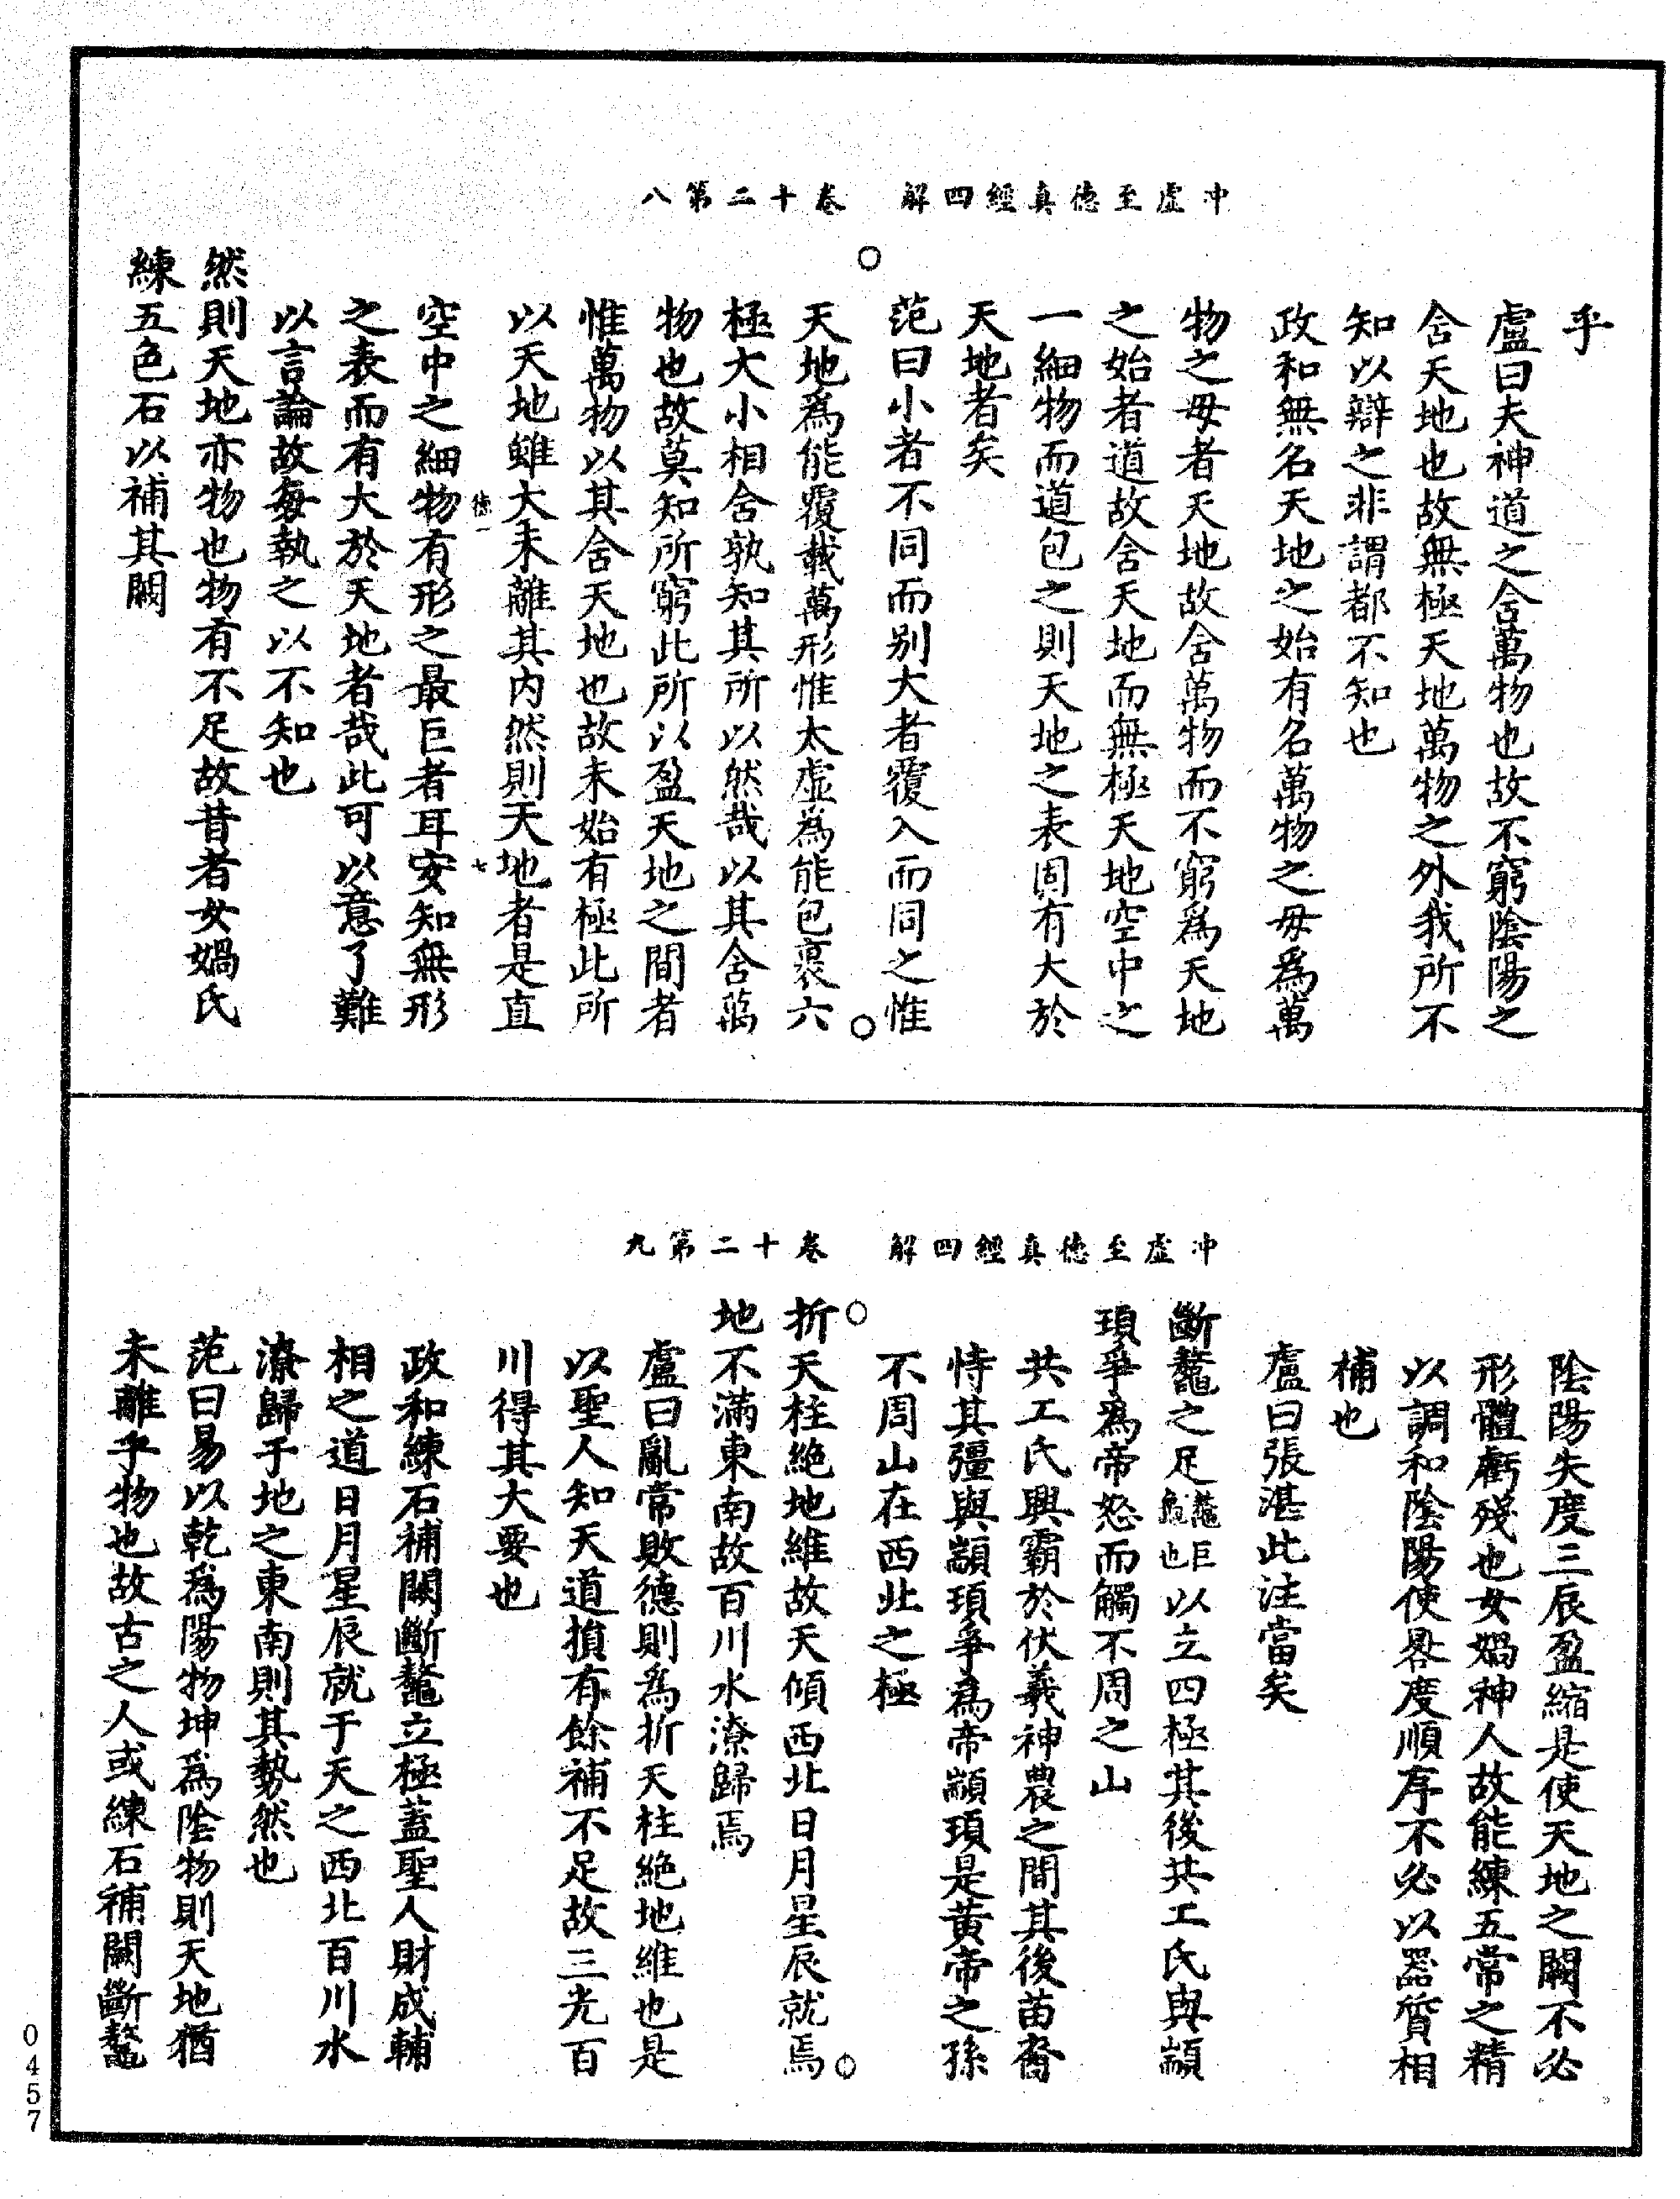 冲虛至德真經四解　卷十二第八
乎
盧曰夫神道之含萬物也故不窮陰陽之
含天地也故無極天地萬物之外我所不
知以辯之非謂都不知也
政和無名天地之始有名萬物之母爲萬
物之母者天地故含萬物而不窮爲天地
之始者道故含天地而無極天地空中之
一細物而道包之則天地之表固有大於
天地者矣
范曰小者不同而别大者覆入而同之惟
天地爲能覆載萬形惟太虛爲能包裹六
極大小相含孰知其所以然哉以其含萬
物也故莫知所窮此所以盈天地之間者
惟萬物以其含天地也故未始有極此所
以天地雖大未離其内然則天地者是直
空中之細物有形之最巨者耳安知無形
之表而有大於天地者哉此可以意了難
以言論故每執之以不知也
然則天地亦物也物有不足故昔者女媧氏
練五色石以補其闕
冲虛至德真經四解　卷十二第九
陰陽失度三辰盈縮是使天地之闕不必
形體虧殘也女媧神人故能練五常之精
以調和陰陽使晷度順序不必以器質相
補也
盧曰張湛此注當矣
斷鼇之足鼇巨龜也以立四極其後共工氏與顓
頊爭爲帝怒而觸不周之山
共工氏興霸於伏羲神農之間其後苗裔
恃其彊與顓頊爭爲帝顓頊是黄帝之孫
不周山在西北之極
折天柱絶地維故天傾西北日月星辰就焉
地不滿東南故百川水潦歸焉
盧曰亂常敗德則爲折天柱絶地維也是
以聖人知天道損有餘補不足故三光百
川得其大要也
政和練石補闕斷鼇立極蓋聖人財成輔
相之道日月星辰就于天之西北百川水
潦歸于地之東南則其勢然也
范曰易以乾爲陽物坤爲陰物則天地猶
未離乎物也故古之人或練石補闕斷鼇
0457